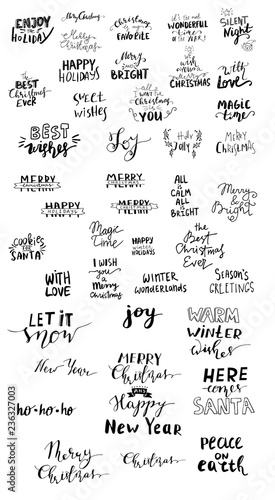 ENJOY
the
HOLIDAY
Merry Christmas
Christmas
is my
FAVORITE
it's the most
WONDERFUL
time
OF THE YEAR!
SILENT
Night
Merry
Christmas
The
BEST
Christmas
EVER
HAPPY
HOLIDAYS
Merry
and
BRIGHT
we
WISH
you a
merry
CHRISTMAS
with
Love
sweet
wishes
all I
want for
Christmas
is
YOU
MAGIC
time
BEST
wishes
Joy
Holly
Jolly
MERRY
CHRISTMAS
MERRY
christmas
MERRY
HAPPY
HOLIDAYS
MERRY
ALL
is
CALM
ALL
is
BRIGHT
Merry
&
Bright
cookies
for
SANTA
Magic
Time
HAPPY
winter
HOLIDAYS
the
Best
Christmas
Ever
WITH
LOVE
I WISH
you
a
Merry
Christmas
WINTER
wonderlands
SEASON'S
GREETINGS
LET IT
snow
joy
WARM
WINTER
wishes
New Year
MERRY
Christmas
HERE
comes
SANTA
ho-ho-ho
Happy
New Year
Merry
Christmas
Christmas
PEACE
on
earth
236327003